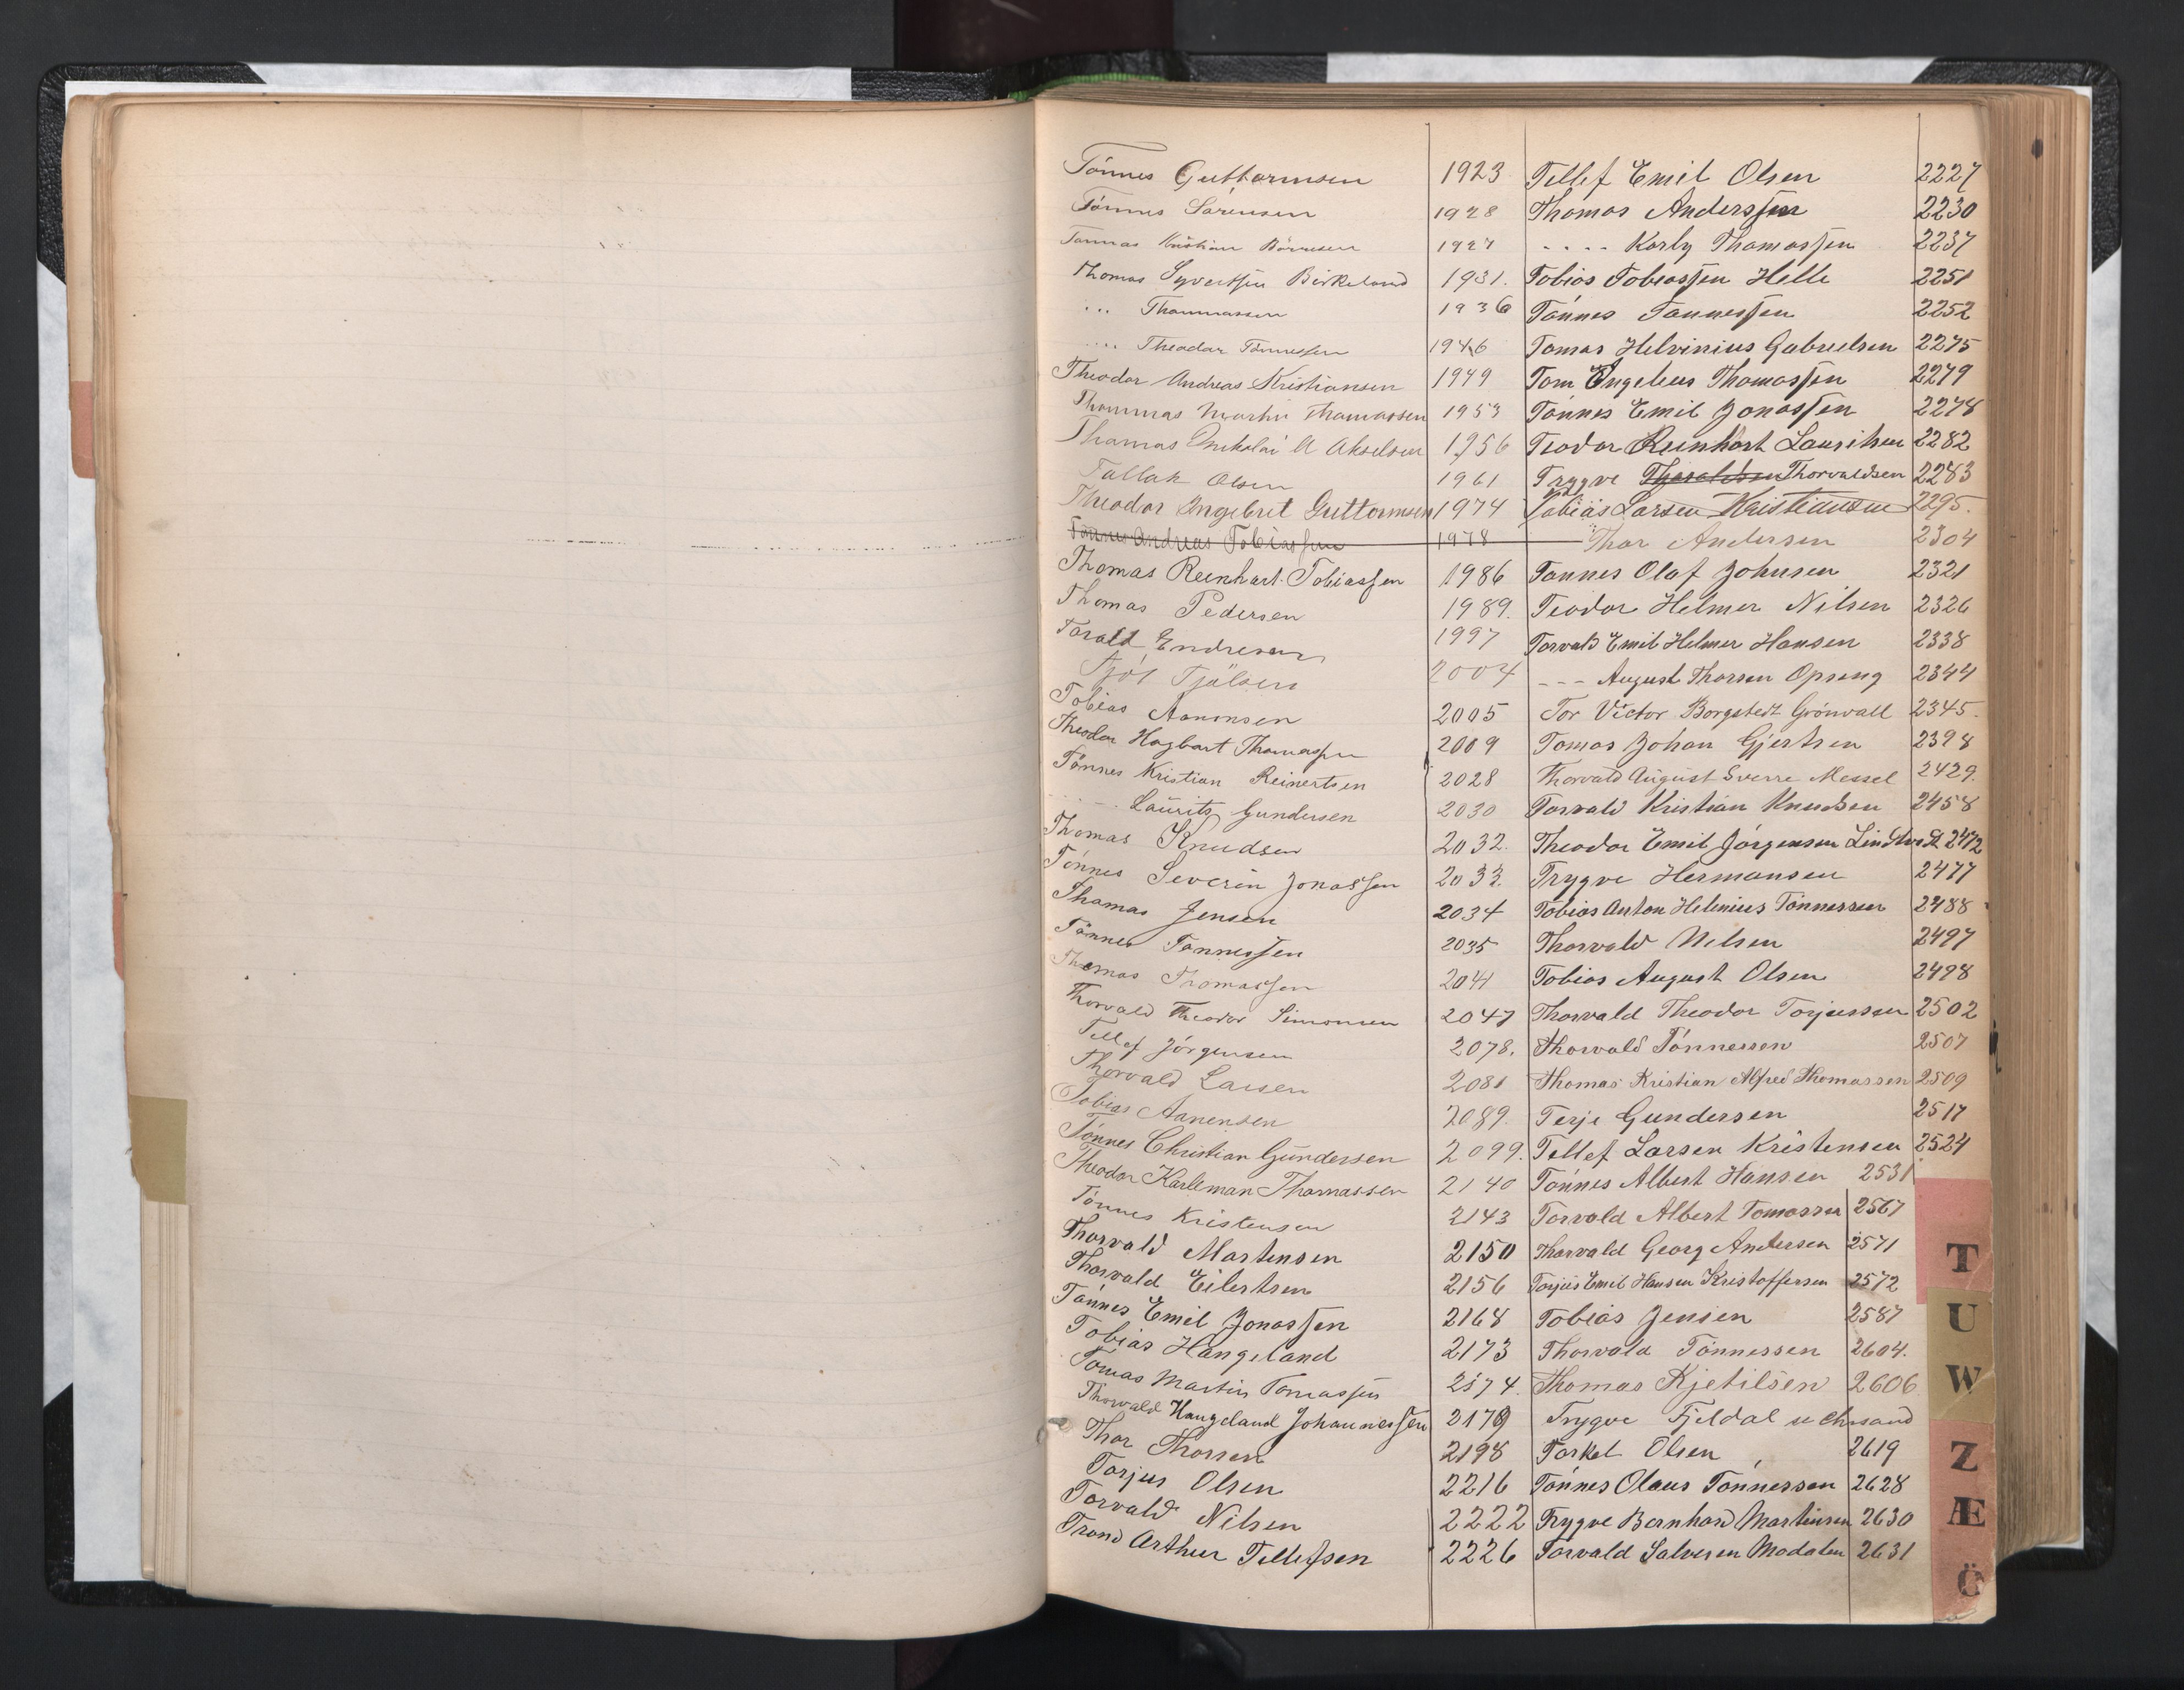 Tónnes Guttormsen 1923
Tönnes Sörensen 1928
Tønnes Kristian Börresen 1927
Thomas Syvertsen Birkeland 1931.
... Thommassen 1936
.... Theodor Tönnessen 1946
Theodor Andreas Kristiansen 1949
Thommas Martin Thomassen 1953
Thomas Nikolai A Akselsen 1956
Tallak Olsen 1961
Theodor Ingebret Guttormsen 1974
Tönnes Andreas Tobiassen 1978
Thomas Reinhart Tobiassen 1986
Thomas Pedersen 1989.
Torald Endresen 1997
Tjöl Tjölsen 2004
Tobias Aanonsen 2005
Theodor Hagbart Thomassen 2009
Tönnes Kristian Reinertsen 2028
- - - - Laurits Gundersen 2030
Thomas Knudsen 2032.
Tönnes Severin Jonassen 2033.
Thomas Jensen 2034
Tönnes Tönnessen 2035
Thomas Thomassen 2041
Thorvald Theodor Simonsen 2047
Tellef Jörgensen 2078.
Thorvald Larsen 2081
Tobias Aanensen 2089.
Tönnes Christian Gundersen 2099.
Theodor Karleman Thomassen 2140
Tönnes Kristensen 2143
Thorvald Martensen 2150
Thorvald Eilertsen 2156
Tónnes Emil Jonassen 2168
Tobias Hangeland 2173
Tomas Martin Tomassen 2174.
Thorvald Haugeland Johannessen 2179
Thor Thorsen 2198
Torjus Olsen 2216
Torvald Nilsen 2222
Trond Arthur Tellefsen 2226
Tellef Emil Olsen 2227
Thomas Anderssen 2230
- - - - Karly Thomassen 2237
Tobias Tobiassen Helle 2251
Tónnes Tónnessen 2252
Tomas Helvinius Gabrielsen 2275
Tom Engelius Thomassen 2279
Tónnes Emil Jonassen 2278
Teodor Reinhart Lauritsen 2282
Trygve Thoraldsen Thorvaldsen 2283
Tobias Larsen Kristiansen 2295.
Thor Andersen 2304
Tonnes Olaf Johnsen 2321
Teodor Helmer Nilsen 2326
Torvald Emil Helmer Hansen 2338
- - - August Thorsen Opsang 2344
Tor Victor Borgstedt Grönvall 2345.
Tomas Johan Gjertsen 2398
Thorvald August Sverre Messel 2429.
Torvald Kristian Knudsen 2458
Theodor Emil Jórgensen 2472
Trygve Hermansen 2477
Tobias Anton Helenius Tönnessen 2488
Thorvald Nilsen 2497
Tobias August Olsen 2498
Thorvald Theodor Torjussen 2502
Thorvald Tónnessen 2507
Thomas Kristian Alfred Thomassen 2509
Terje Gundersen 2517
Tellef Larsen Kristensen 2524
Tónnes Albert Hansen 2531
Torvald Albert Tomassen 2567
Thorvald Georg Andersen 2571
Torjus Emil Hansen Kristoffersen 2572
Tobias Jensen 2587
Thorvald Tönnessen 2604.
Thomas Kjetilsen 2606
Trygve Fjeldal se Chrsand
Torkel Olsen 2619
Tónnes Olaus Tónnessen 2628
Trygve Bernhard Martinsen 2630
Torvald Salvesen Modalen 2631
T
U
W
Z
Æ
Ö